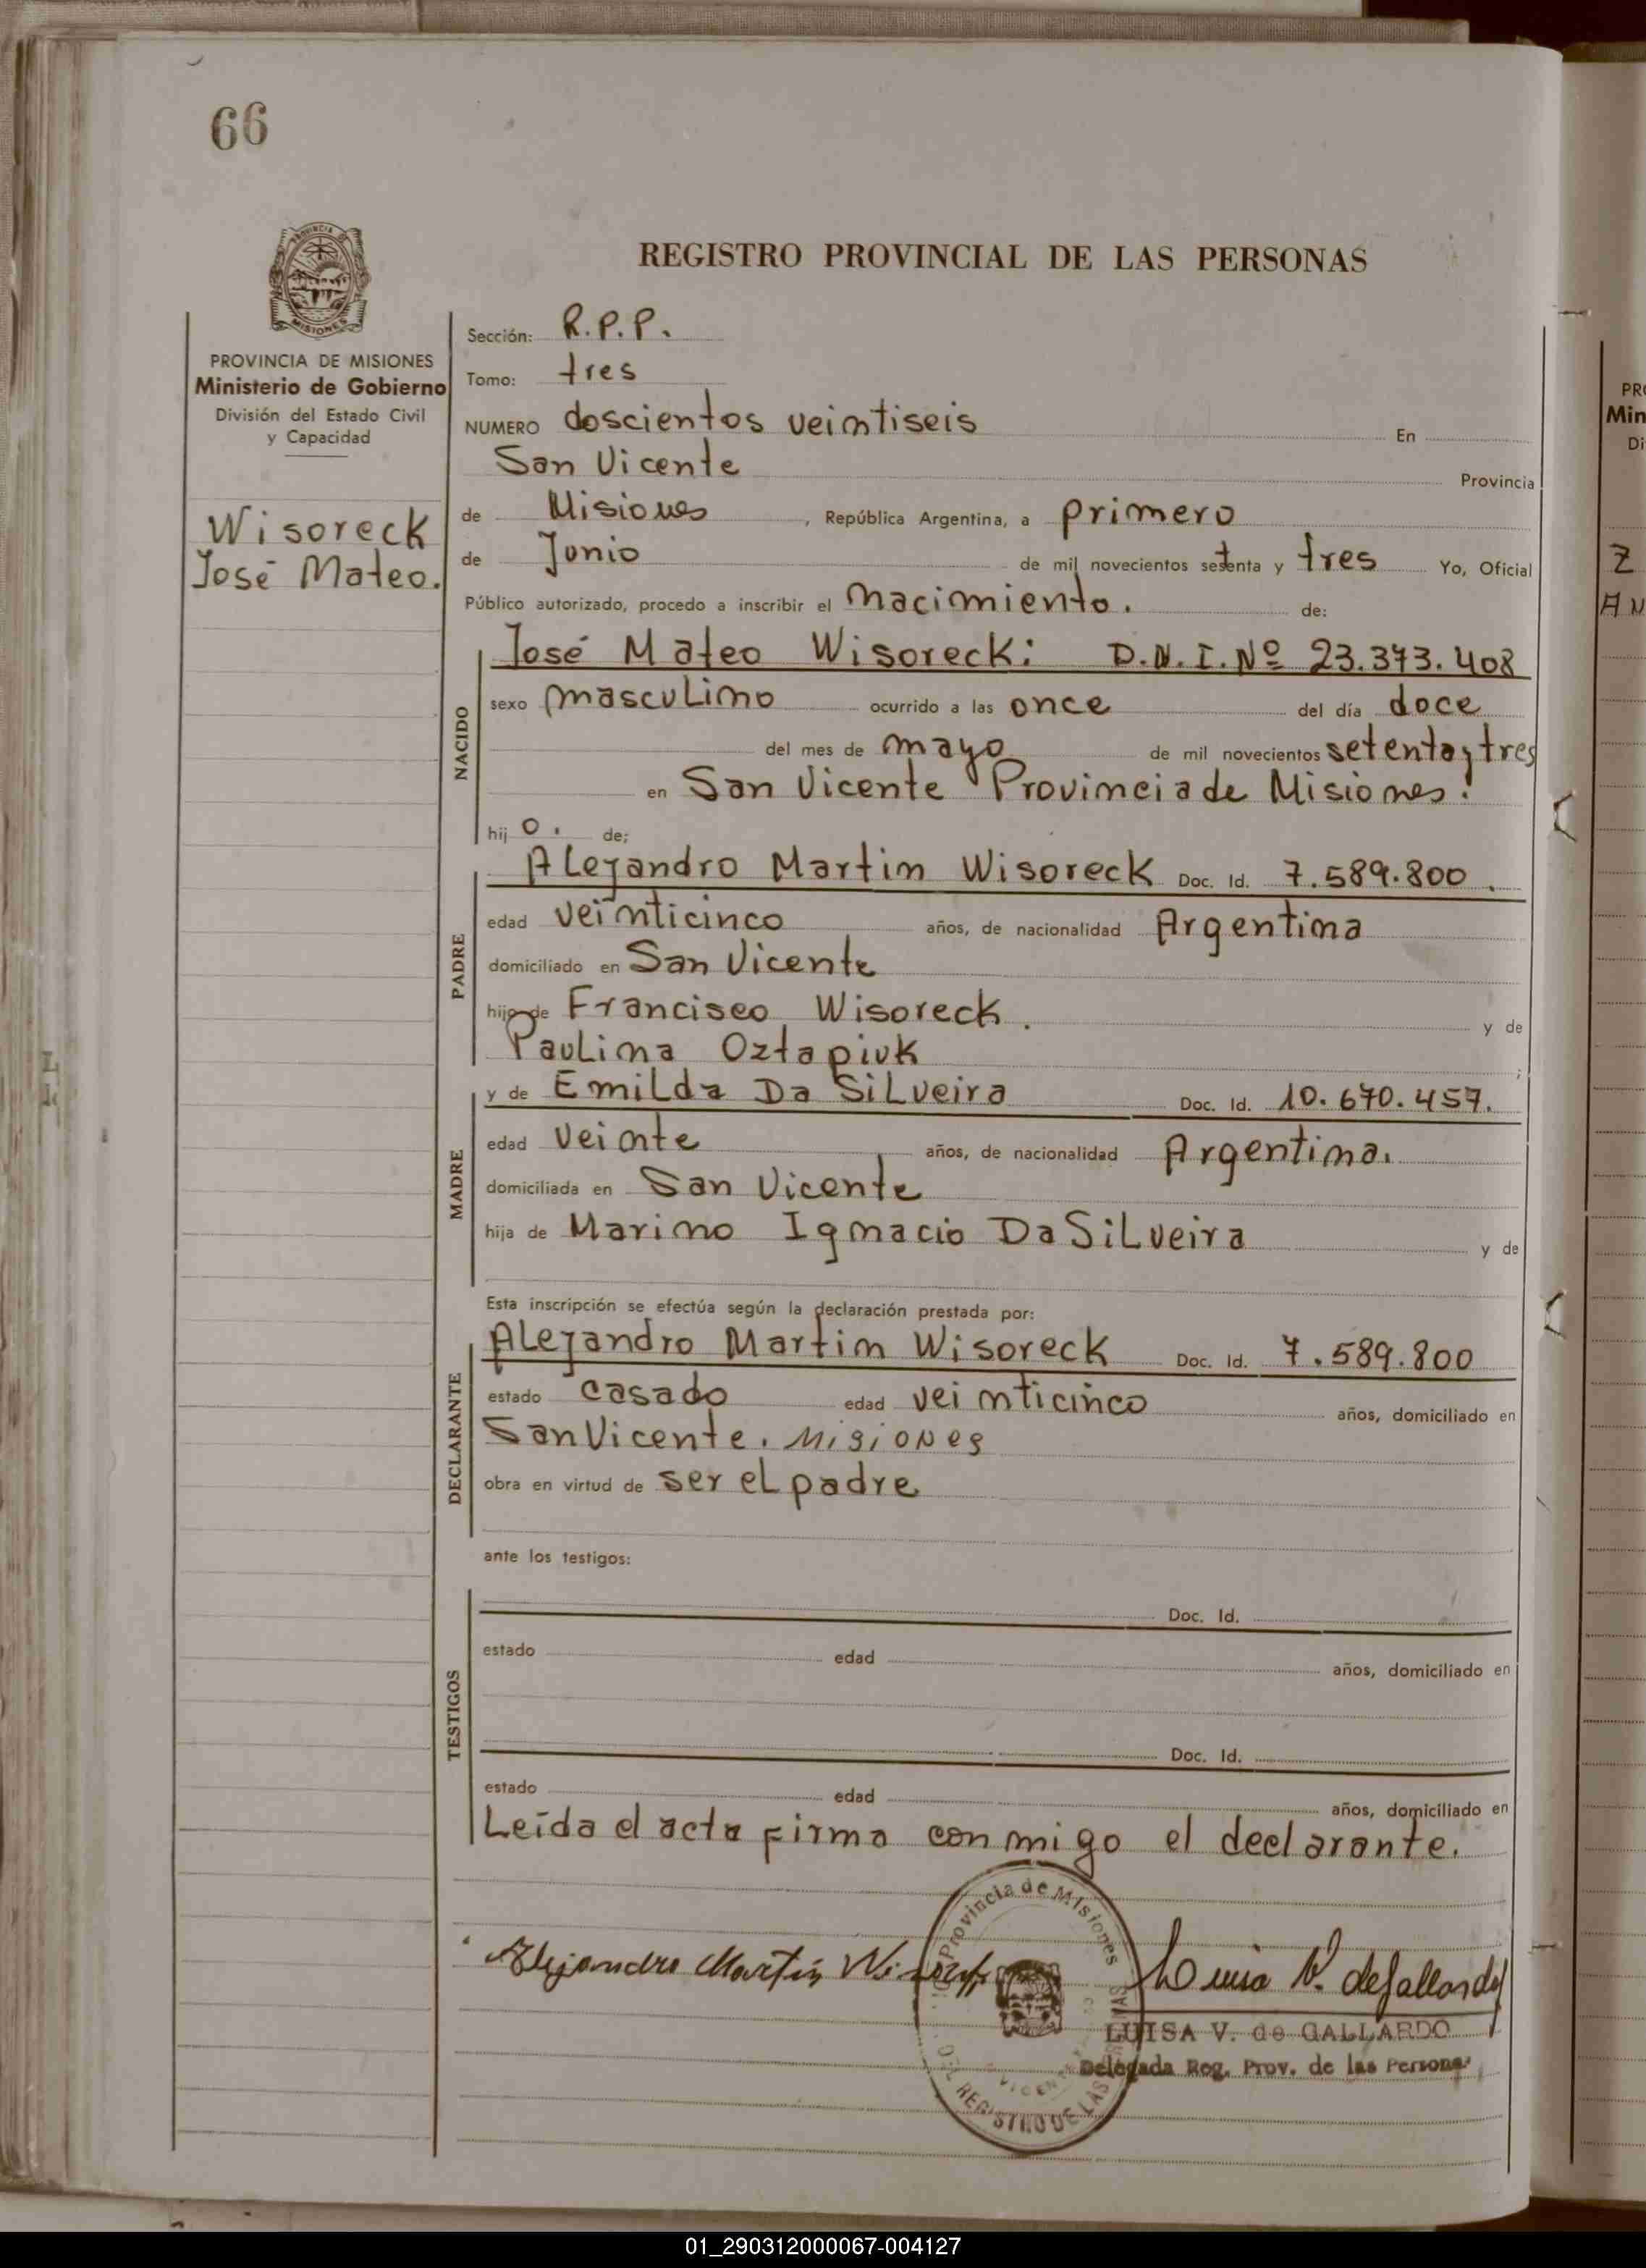 66
REGISTRO PROVINCIAL DE LAS PERSONAS
MISIONES
PROVINCIA DE MISIONES
Ministerio de Gobierno
División del Estado Civil
y Capacidad
Wisoreck
José Mateo.
Sección: R.P.P.
Tomo: tres
NUMERO doscientos veintiseis En
San Vicente Provincia
de Misiones, República Argentina, a primero
de Junio de mil novecientos setenta y tres Yo, Oficial
Público autorizado, procedo a inscribir el nacimiento. de:
NACIDO
José Mateo Wisoreck: D.N.I.Nº 23.373.408
sexo masculino ocurrido a las once del día doce
del mes de mayo de mil novecientos setenta y tres
en San Vicente Provincia de Misiones.
hijo. de;
PADRE
Alejandro Martin Wisoreck Doc. Id. 7.589.800.
edad veinticinco años, de nacionalidad Argentina
domiciliado en San Vicente
hijo de Francisco Wisoreck. y de
Paulina Oztapiuk ;
MADRE
y de Emilda Da Silveira Doc. Id. 10.670.457.
edad veinte años, de nacionalidad Argentina.
domiciliada en San Vicente
hija de Marino Ignacio Da Silveira y de
Esta inscripción se efectúa según la declaración prestada por:
DECLARANTE
Alejandro Martin Wisoreck Doc. Id. 7.589.800
estado casado edad veinticinco años, domiciliado en
San Vicente. Misiones
obra en virtud de ser el padre
ante los testigos:
TESTIGOS
Doc. Id.
estado edad años, domiciliado en
Doc. Id.
estado edad años, domiciliado en
Leída el acta firma conmigo el declarante.
Provincia de Misiones
Alejandro Martín
Luisa V. de Gallardo
LUISA V. de GALLARDO
Delegada Reg. Prov. de las Personas
DEL REGISTRO DE LAS
PRO
Min
Di
Z
AN
01_290312000067-004127